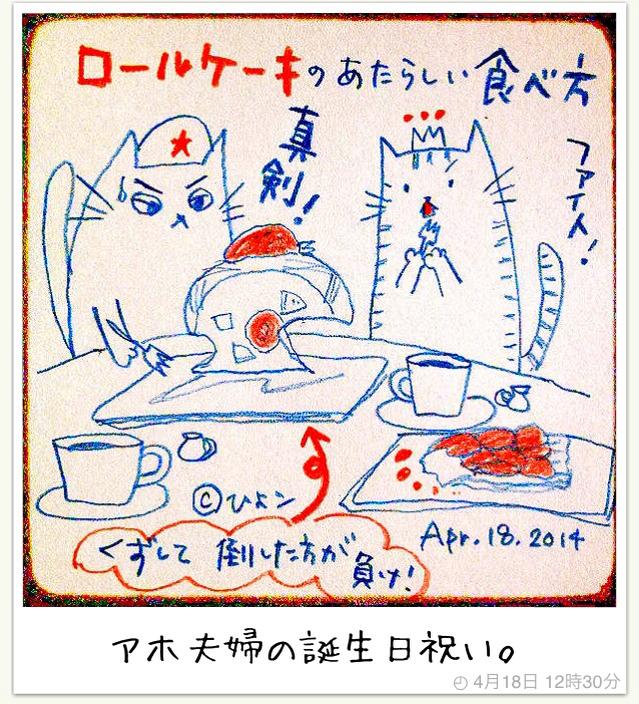 ロールケーキのあたらしい食べ方
真剣!
ファイト!
©ひよン
くずして 倒した方が負け!
Apr.18.2014
アホ夫婦の誕生日祝い。
4月18日 12時30分